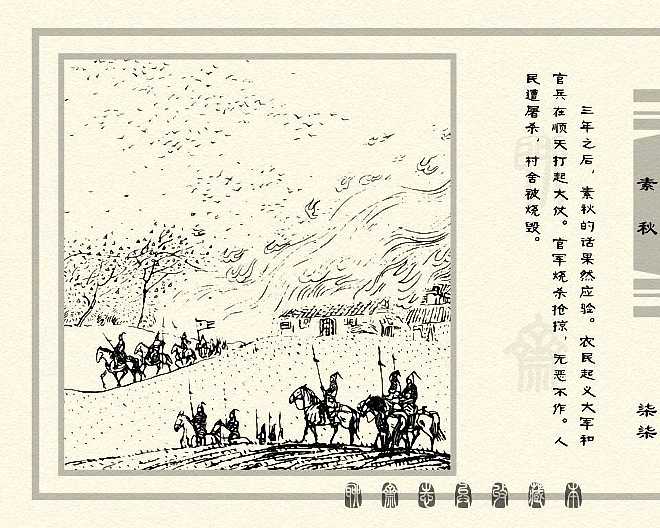 三年之后，素秋的话果然应验。农民起义大军和
官兵在顺天打起大仗。官军烧杀抢掠，无恶不作。人
民遭屠杀，村舍被烧毁。
素秋
柒柒